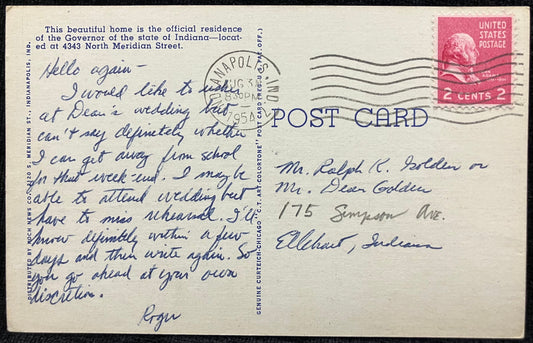 This beautiful home is the official residence
of the Governor of the state of Indiana—locat-
ed at 4343 North Meridian Street.
Hello again-
I would like to usher
at Dean's wedding but
can't say definitely whether
I can get away from school
for that week-end. I may be
able to attend wedding but
have to miss rehearsal. I'll
know definitely within a few
days and then write again. So
you go ahead at your own
discretion.
Roger
DISTRIBUTED BY KOCH NEWS CO., S. MERIDIAN ST., INDIANAPOLIS, IND.
GENUINE CURTEICH-CHICAGO "C.T. ART-COLORTONE" POST CARD (REG. U.S. PAT. OFF.)
INDIANAPOLIS, IND.
AUG 30
8 30 PM
1954
UNITED
STATES
POSTAGE
2 CENTS 2
POST CARD
Mr. Ralph K. Golden or
Mr. Dean Golden
175 Simpson Ave.
Elkhart, Indiana